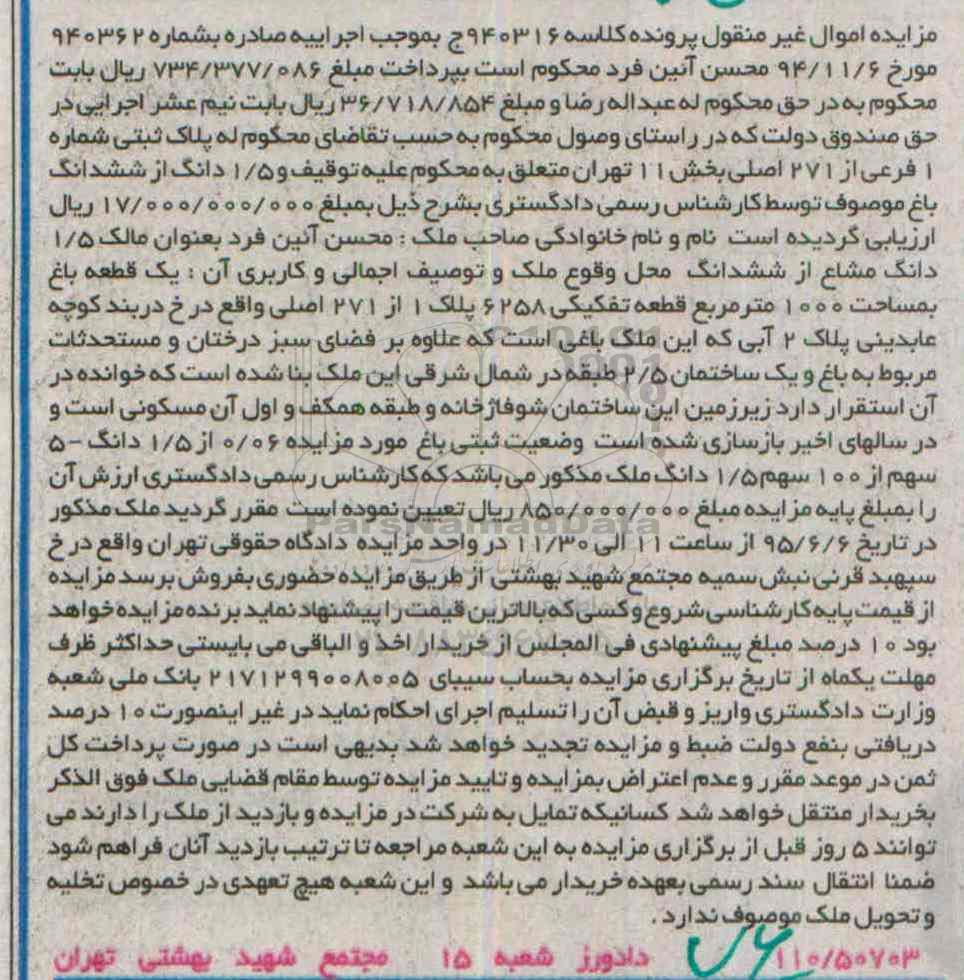 مزایده اموال غیر منقول پرونده کلاسه ۹۴۰۳۱۶ج بموجب اجراییه صادره بشماره ۹۴۰۳۶۲
مورخ ۹۴/۱۱/۶ محسن آئین فرد محکوم است بپرداخت مبلغ ۷۳۴/۳۷۷/۰۸۶ ریال بابت
محکوم به در حق محکوم له عبداله رضا و مبلغ ۳۶/۷۱۸/۸۵۴ ریال بابت نیم عشر اجرایی در
حق صندوق دولت که در راستای وصول محکوم به حسب تقاضای محکوم له پلاک ثبتی شماره
۱ فرعی از ۲۷۱ اصلی بخش ۱۱ تهران متعلق به محکوم علیه توقیف و ۱/۵ دانگ از ششدانگ
باغ موصوف توسط کارشناس رسمی دادگستری بشرح ذیل بمبلغ ۱۷/۰۰۰/۰۰۰/۰۰۰ ریال
ارزیابی گردیده است نام و نام خانوادگی صاحب ملک : محسن آئین فرد بعنوان مالک ۱/۵
دانگ مشاع از ششدانگ محل وقوع ملک و توصیف اجمالی و کاربری آن : یک قطعه باغ
بمساحت ۱۰۰۰ مترمربع قطعه تفکیکی ۶۲۵۸ پلاک ۱ از ۲۷۱ اصلی واقع در خ دربند کوچه
عابدینی پلاک ۲ آبی که این ملک باغی است که علاوه بر فضای سبز درختان و مستحدثات
مربوط به باغ و یک ساختمان ۲/۵ طبقه در شمال شرقی این ملک بنا شده است که خوانده در
آن استقرار دارد زیرزمین این ساختمان شوفاژخانه و طبقه همکف و اول آن مسکونی است و
در سالهای اخیر بازسازی شده است وضعیت ثبتی باغ مورد مزایده ۰/۰۶ از ۱/۵ دانگ -۵
سهم از ۱۰۰ سهم ۱/۵ دانگ ملک مذکور می باشد که کارشناس رسمی دادگستری ارزش آن
را بمبلغ پایه مزایده مبلغ ۸۵۰/۰۰۰/۰۰۰ ریال تعیین نموده است مقرر گردید ملک مذکور
در تاریخ ۹۵/۶/۶ از ساعت ۱۱ الی ۱۱/۳۰ در واحد مزایده دادگاه حقوقی تهران واقع در خ
سپهبد قرنی نبش سمیه مجتمع شهید بهشتی از طریق مزایده حضوری بفروش برسد مزایده
از قیمت پایه کارشناسی شروع و کسی که بالاترین قیمت را پیشنهاد نماید برنده مزایده خواهد
بود ۱۰ درصد مبلغ پیشنهادی فی المجلس از خریدار اخذ و الباقی می بایستی حداکثر ظرف
مهلت یکماه از تاریخ برگزاری مزایده بحساب سیبای ۲۱۷۱۲۹۹۰۰۸۰۰۵ بانک ملی شعبه
وزارت دادگستری واریز و قبض آن را تسلیم اجرای احکام نماید در غیر اینصورت ۱۰ درصد
دریافتی بنفع دولت ضبط و مزایده تجدید خواهد شد بدیهی است در صورت پرداخت کل
ثمن در موعد مقرر و عدم اعتراض بمزایده و تایید مزایده توسط مقام قضایی ملک فوق الذکر
بخریدار منتقل خواهد شد کسانیکه تمایل به شرکت در مزایده و بازدید از ملک را دارند می
توانند ۵ روز قبل از برگزاری مزایده به این شعبه مراجعه تا ترتیب بازدید آنان فراهم شود
ضمنا انتقال سند رسمی بعهده خریدار می باشد و این شعبه هیچ تعهدی در خصوص تخلیه
و تحویل ملک موصوف ندارد .
۱۱۰/۵۰۷۰۳ دادورز شعبه ۱۵ مجتمع شهید بهشتی تهران
ParsNamadData